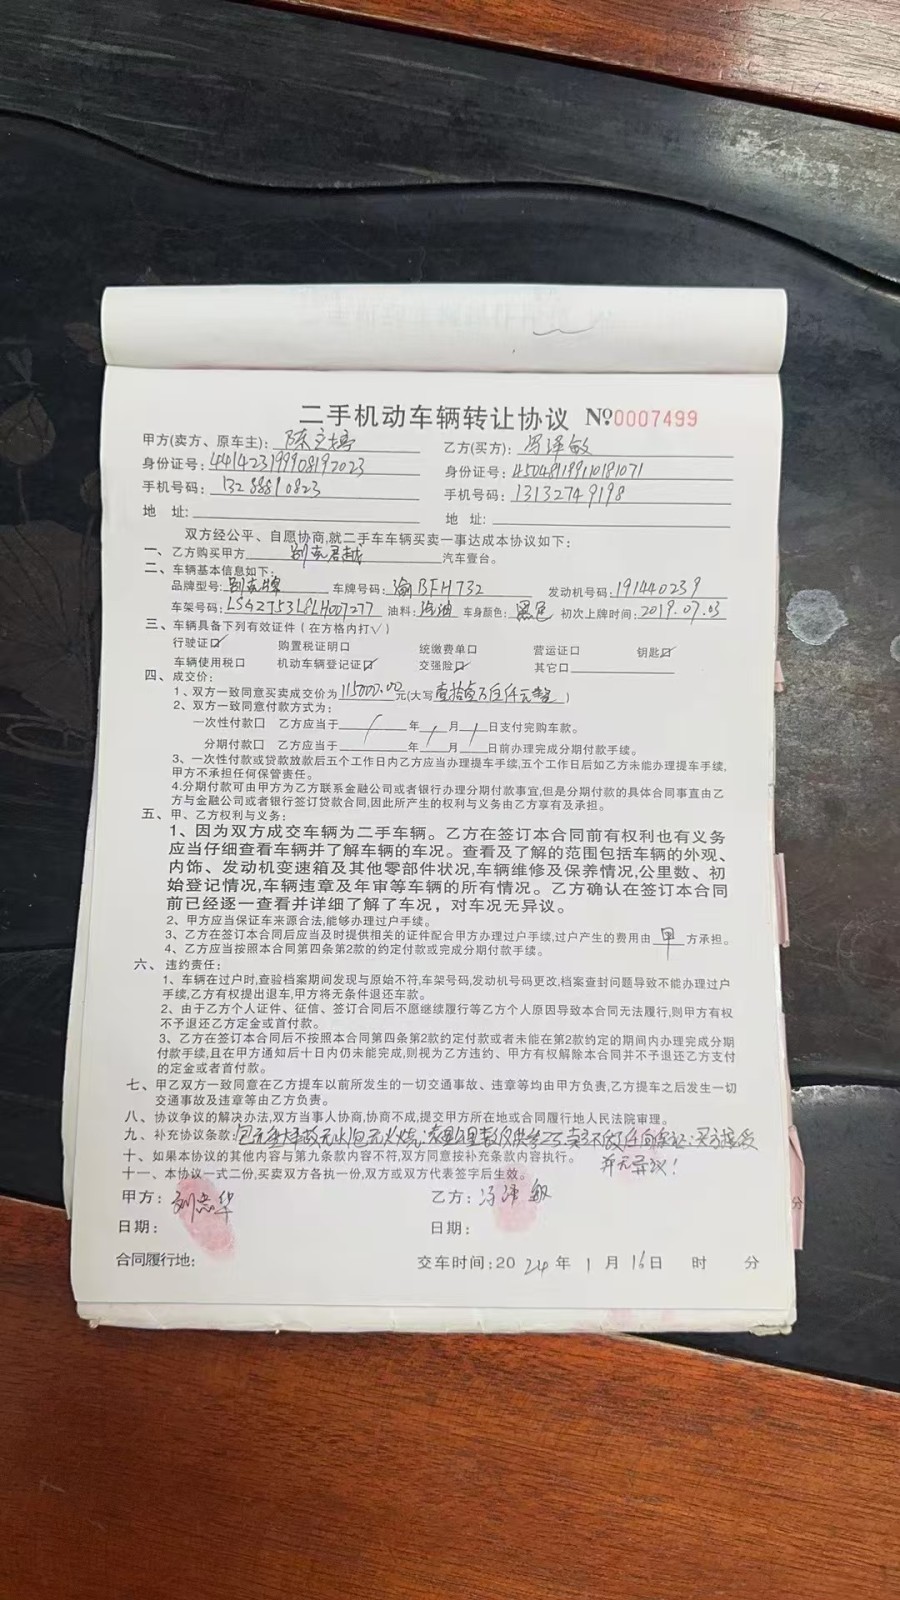 二手机动车辆转让协议 №0007499
甲方(卖方、原车主): 陈 乙方(买方): 冯泽敏
身份证号: 441423199908192023 身份证号: 45048119910181071
手机号码: 13288810823 手机号码: 13132749198
地 址: 地 址:
双方经公平、自愿协商,就二手车车辆买卖一事达成本协议如下:
一、乙方购买甲方 别克君越 汽车壹台。
二、车辆基本信息如下:
品牌型号: 别克牌 车牌号码: 渝BFH732 发动机号码: 191440239
车架号码: 油料: 汽油 车身颜色: 黑色 初次上牌时间: 2019.07.03
三、车辆具备下列有效证件(在方格内打√)
行驶证☑ 购置税证明口 统缴费单口 营运证口 钥匙☑
车辆使用税口 机动车辆登记证☑ 交强险☑ 其它口
四、成交价:
1、双方一致同意买卖成交价为 115000.00 元(大写 )
2、双方一致同意付款方式为:
一次性付款口 乙方应当于 / 年 / 月 / 日支付完购车款。
分期付款口 乙方应当于 年 月 日前办理完成分期付款手续。
3、一次性付款或贷款放款后五个工作日内乙方应当办理提车手续,五个工作日后如乙方未能办理提车手续,
甲方不承担任何保管责任。
4.分期付款可由甲方为乙方联系金融公司或者银行办理分期付款事宜,但是分期付款的具体合同事直由乙
方与金融公司或者银行签订贷款合同,因此所产生的权利与义务由乙方享有及承担。
五、甲、乙方权利与义务:
1、因为双方成交车辆为二手车辆。乙方在签订本合同前有权利也有义务
应当仔细查看车辆并了解车辆的车况。查看及了解的范围包括车辆的外观、
内饰、发动机变速箱及其他零部件状况,车辆维修及保养情况,公里数、初
始登记情况,车辆违章及年审等车辆的所有情况。乙方确认在签订本合同
前已经逐一查看并详细了解了车况，对车况无异议。
2、甲方应当保证车来源合法,能够办理过户手续。
3、乙方在签订本合同后应当及时提供相关的证件配合甲方办理过户手续,过户产生的费用由 甲 方承担。
4、乙方应当按照本合同第四条第2款的约定付款或完成分期付款手续。
六、违约责任:
1、车辆在过户时,查验档案期间发现与原始不符,车架号码,发动机号码更改,档案查封问题导致不能办理过户
手续,乙方有权提出退车,甲方将无条件退还车款。
2、由于乙方个人证件、征信、签订合同后不愿继续履行等乙方个人原因导致本合同无法履行,则甲方有权
不予退还乙方定金或首付款。
3、乙方在签订本合同后不按照本合同第四条第2款约定付款或者未能在第2款约定的期间内办理完成分期
付款手续,且在甲方通知后十日内仍未能完成,则视为乙方违约、甲方有权解除本合同并不予退还乙方支付
的定金或者首付款。
七、甲乙双方一致同意在乙方提车以前所发生的一切交通事故、违章等均由甲方负责,乙方提车之后发生一切
交通事故及违章等由乙方负责。
八、协议争议的解决办法,双方当事人协商,协商不成,提交甲方所在地或合同履行地人民法院审理。
九、补充协议条款: 包无重大事故无水泡无火烧.表显公里数仅供参考 不做任何保证.买方接受
并无异议!
十、如果本协议的其他内容与第九条款内容不符,双方同意按补充条款内容执行。
十一、本协议一式二份,买卖双方各执一份,双方或双方代表签字后生效。
甲方: 刘忠华 乙方: 冯泽敏
日期: 日期:
合同履行地: 交车时间:2024年1月16日 时 分
分